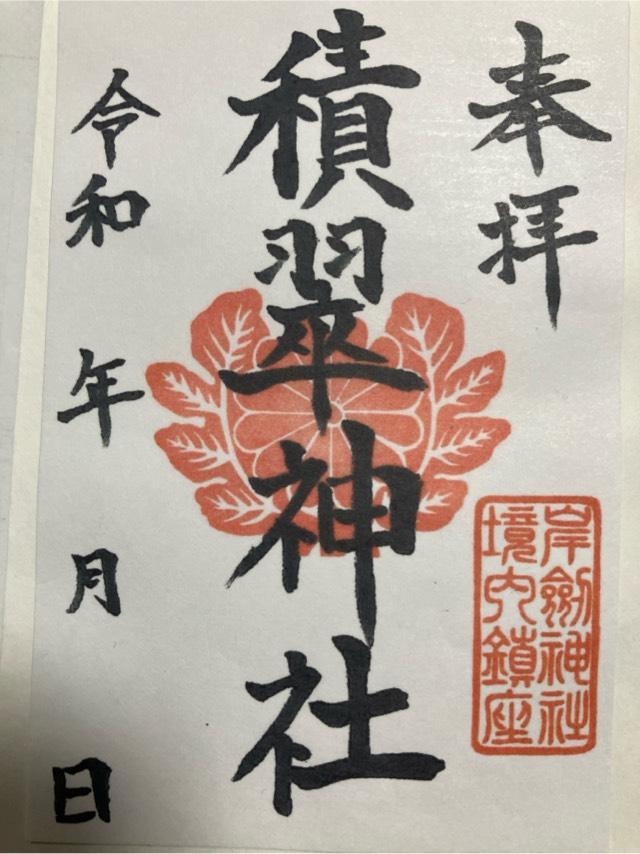 奉拝
積翠神社
岸劔神社
境内鎮座
令和 年 月 日